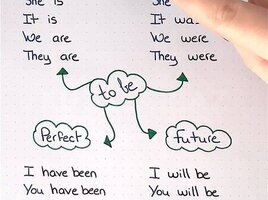 She is
It is
We are
They are
She
It was
We were
They were
to be
Perfect
future
I have been
You have been
I will be
You will be